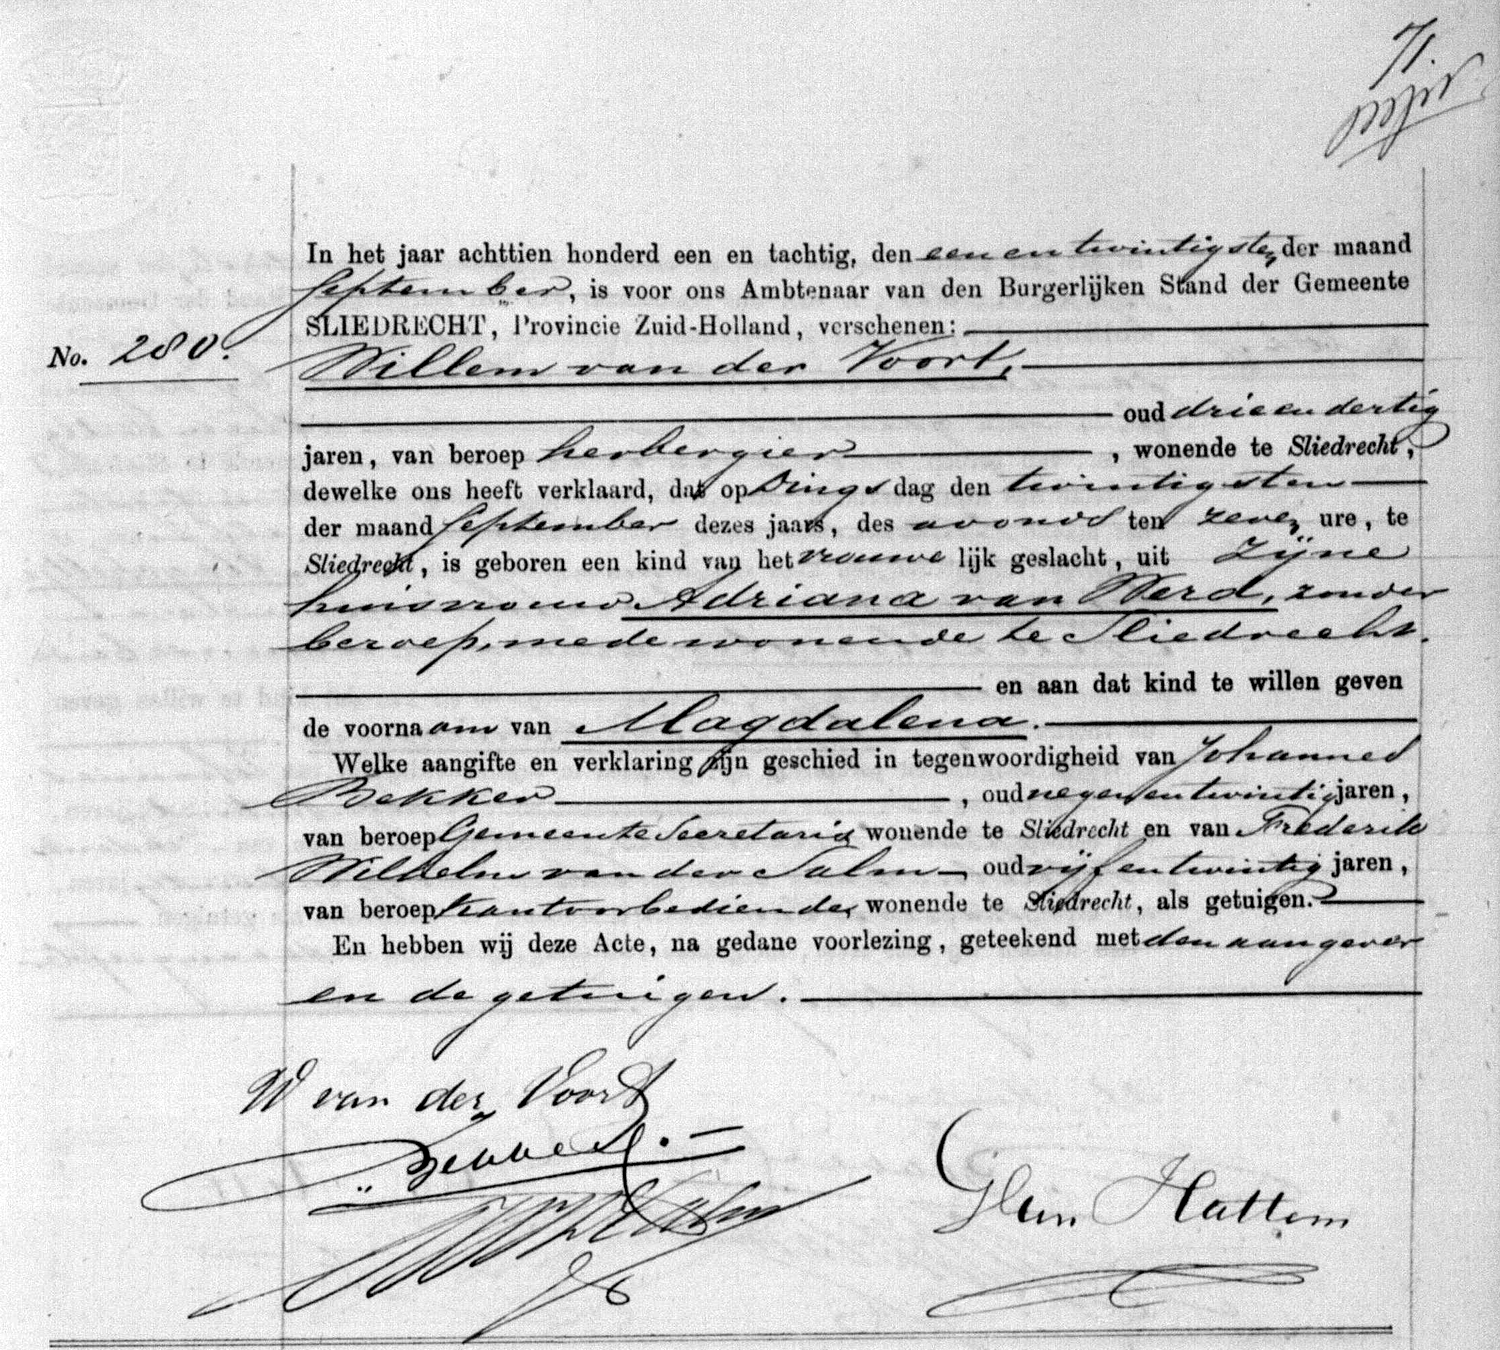 71.
In het jaar achttien honderd een en tachtig, den een en twintigsten der maand
September, is voor ons Ambtenaar van den Burgerlijken Stand der Gemeente
SLIEDRECHT, Provincie Zuid-Holland, verschenen:
No. 280.
Willem van der Voort,
oud drie en dertig
jaren, van beroep herbergier, wonende te Sliedrecht,
dewelke ons heeft verklaard, dat op Dingsdag den twintigsten
der maand September dezes jaars, des avonds ten zeven ure, te
Sliedrecht, is geboren een kind van het vrouwelijk geslacht, uit zijne
huisvrouw Adriana van Werd, zonder
beroep, mede wonende te Sliedrecht.
en aan dat kind te willen geven
de voornaam van Magdalena.
Welke aangifte en verklaring zijn geschied in tegenwoordigheid van Johannes
Bekker, oud negen en twintig jaren,
van beroep Gemeente Secretaris wonende te Sliedrecht en van Frederik
Wilhelm van der Salm oud vijf en twintig jaren,
van beroep kantoorbediende, wonende te Sliedrecht, als getuigen.
En hebben wij deze Acte, na gedane voorlezing, geteekend met den aangever
en de getuigen.
W van der Voort
Bekker.
Hattem